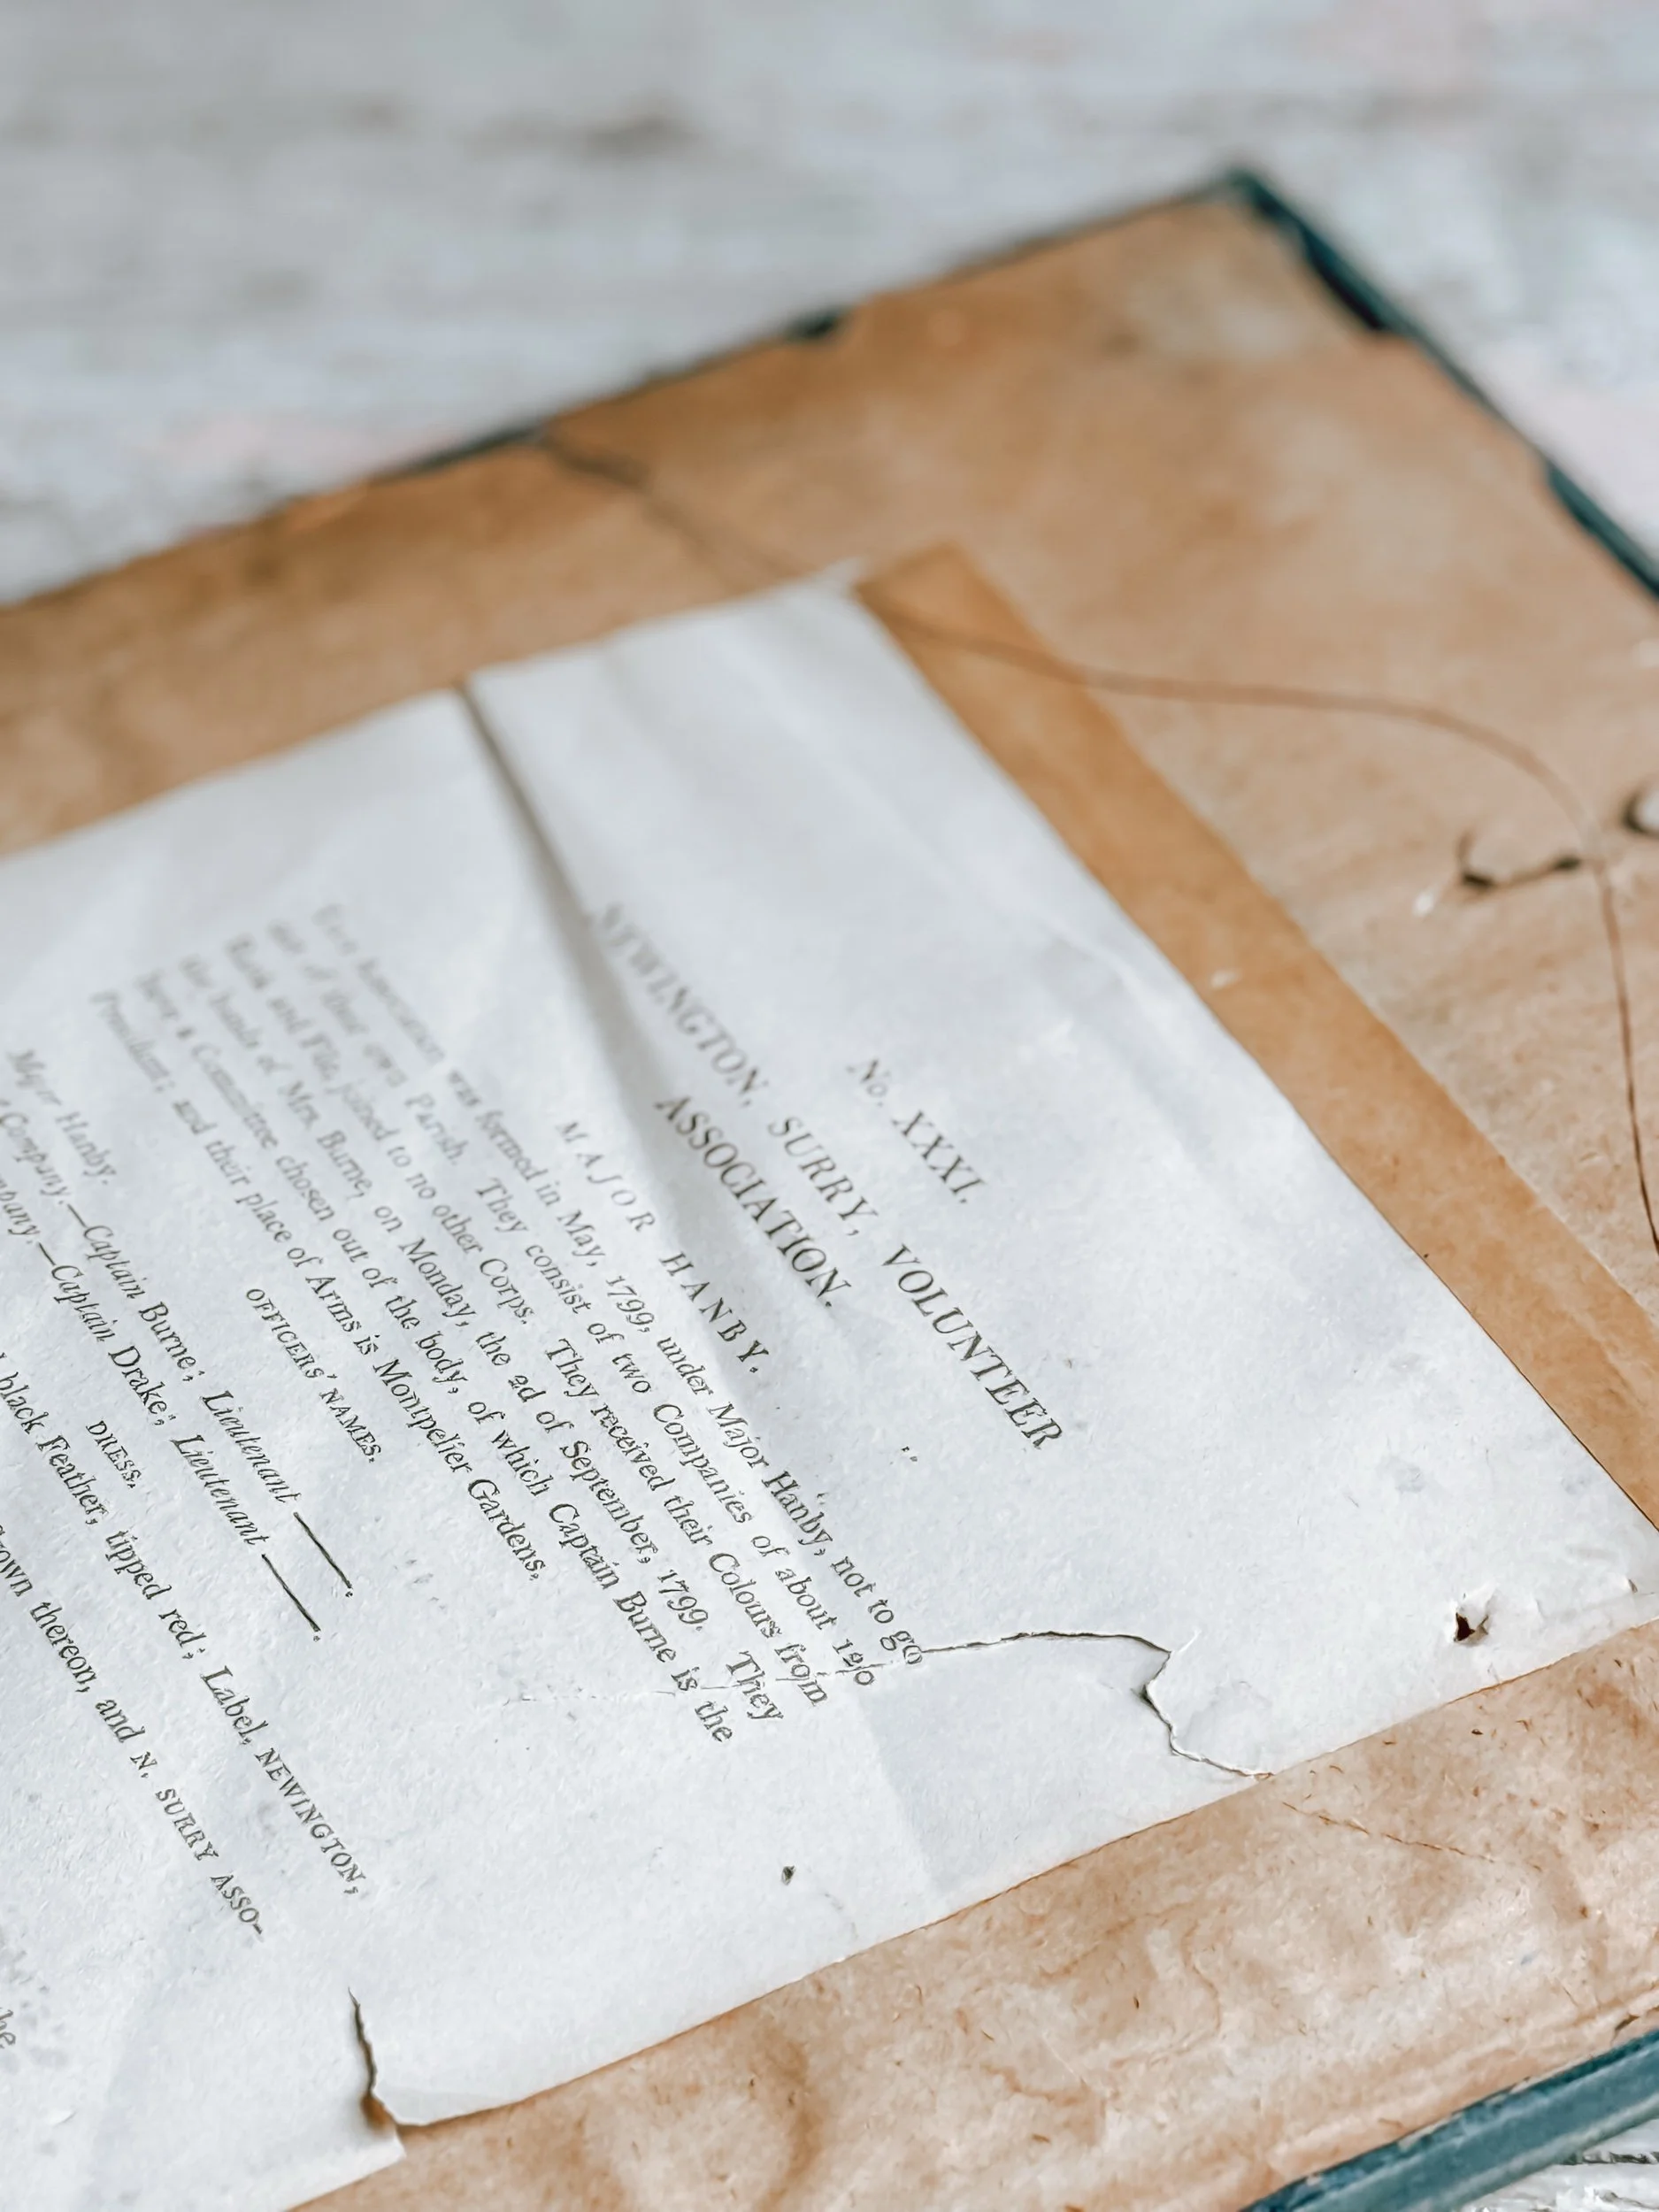 No. XXXI.
NEWINGTON, SURRY, VOLUNTEER
ASSOCIATION.
MAJOR HANBY.
Association was formed in May, 1799, under Major Hanby, not to go
out of their own Parish. They consist of two Companies of about 120
Rank and File, joined to no other Corps. They received their Colours from
the hands of Mrs. Burne, on Monday, the 2d of September, 1799. They
have a Committee chosen out of the body, of which Captain Burne is the
President; and their place of Arms is Montpelier Gardens.
OFFICERS' NAMES.
Major Hanby.
Company.—Captain Burne; Lieutenant ——.
Company.—Captain Drake; Lieutenant ——.
DRESS.
black Feather, tipped red; Label, NEWINGTON,
thereon, and N. SURRY ASSO-